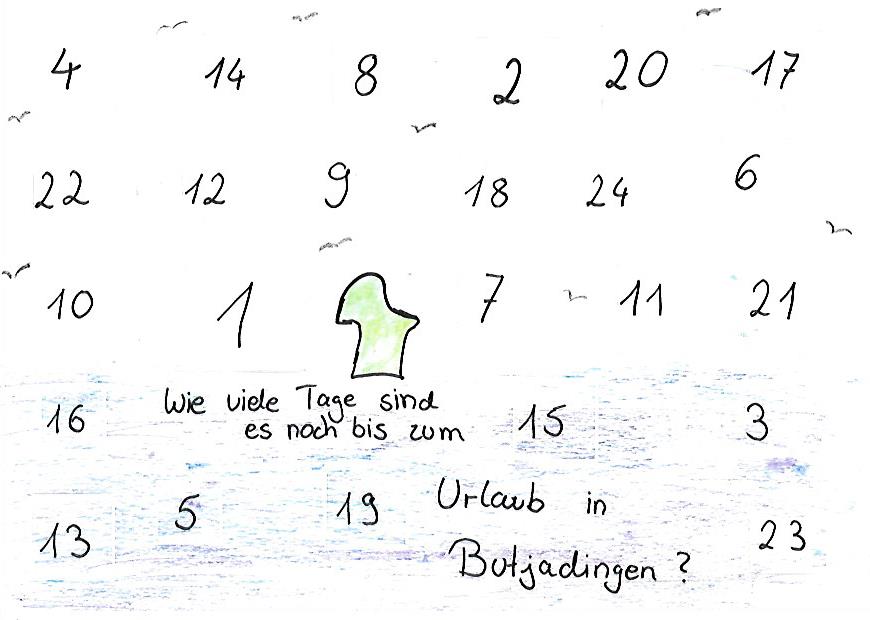 4 14 8 2 20 17
22 12 9 18 24 6
10 1 7 11 21
16 Wie viele Tage sind
es noch bis zum 15 3
5 19 Urlaub in
13 Butjadingen ? 23